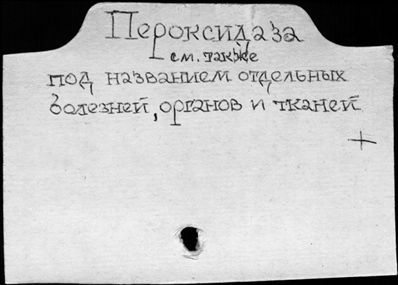 Пероксидаза
см. также
под названием отдельных
болезней, органов и тканей
+